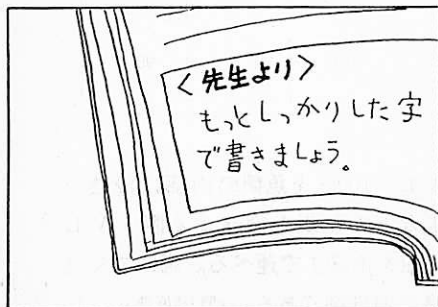 <先生より>
もっとしっかりした字
で書きましょう。